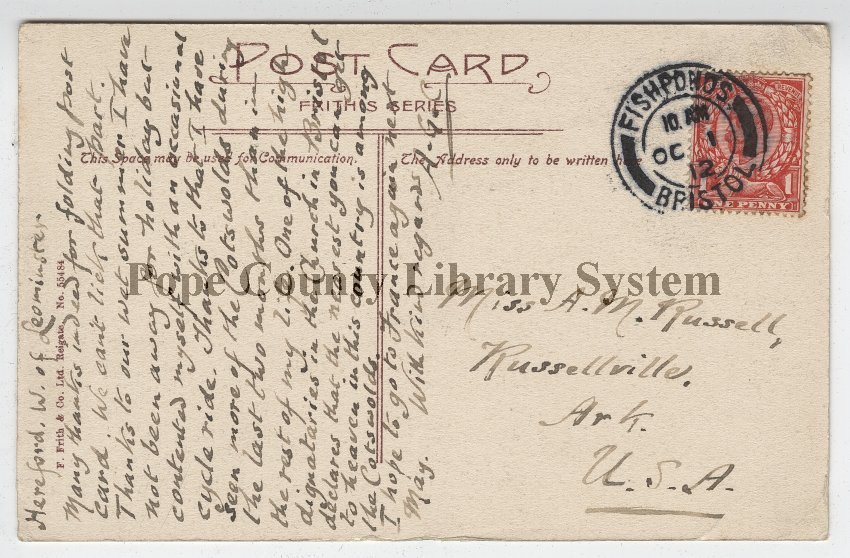 POST CARD
FRITH'S SERIES
This Space may be used for Communication.
The Address only to be written here
FISHPONDS.
10. AM
OC 1
12
BRISTOL
ONE PENNY
Pope County Library System
Miss A. M. Russell,
Russellville.
Ark.
U.S.A.
F. Frith & Co. Ltd. Reigate. No. 55484
Hereford. W. of Leominster
Many thanks indeed for folding post
card. We can't lick that part.
Thanks to our wet summer I have
not been away for holiday but
contented myself with an occasional
cycle ride. Thanks to that I have
seen more of the Cotswolds during
the last two months than in
the rest of my life. One of the high
dignataries in the Church in Bristol
declares that the nearest you can get
to heaven in this country is among
the Cotswolds.
I hope to go to France again next
May. With kind regards